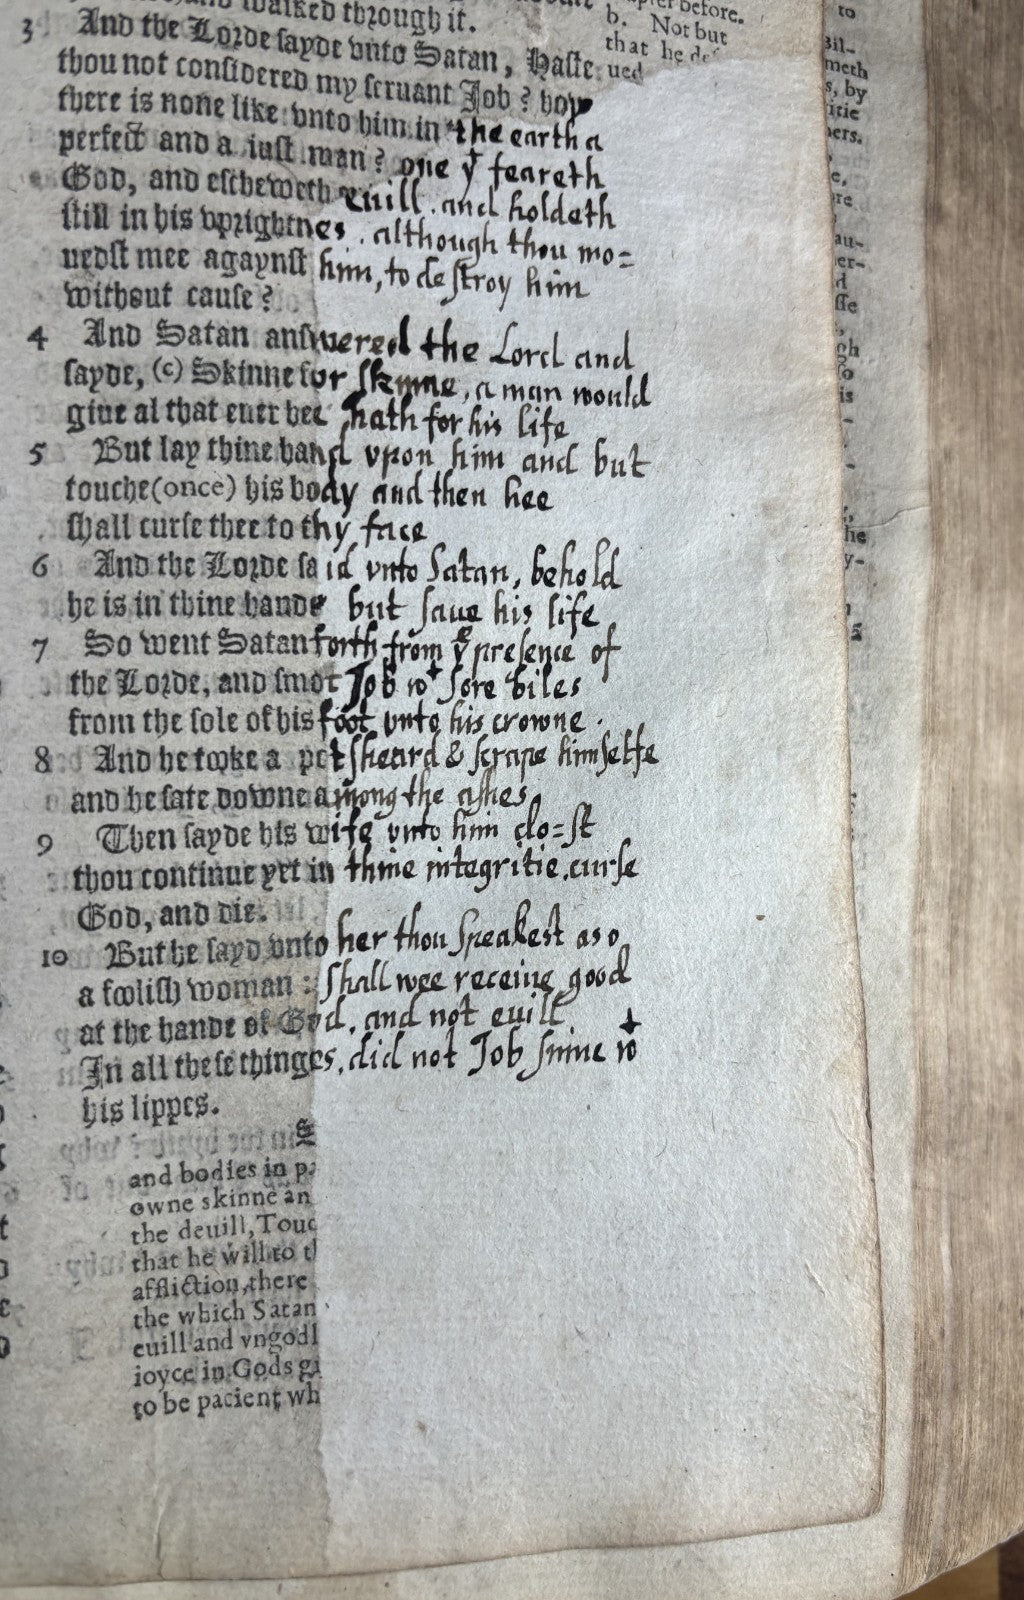 and walked through it.
3 And the Lorde sayde vnto Satan, Haste
thou not considered my seruant Job? how
there is none like vnto him in the earth a
perfect and a iust man? one yt feareth
God, and escheweth euill. and holdeth
still in his vprightnes. although thou mo=
uedst mee agaynst him, to destroy him
without cause?
4 And Satan answered the Lord and
sayde, (c) Skinne for skinne, a man would
giue al that euer hee hath for his life
5 But lay thine hand vpon him and but
touche (once) his body and then hee
shall curse thee to thy face
6 And the Lorde said vnto Satan, behold
he is in thine hande but saue his life
7 So went Satan forth from ye presence of
the Lorde, and smot Job wt sore biles
from the sole of his foot vnto his crowne.
8 And he tooke a potsheard & scrape himselfe
and he sate downe among the ashes
9 Then sayde his wife vnto him do=st
thou continue yet in thine integritie. curse
God, and die.
10 But he sayd vnto her thou speakest as
a foolish woman: shall wee receiue good
at the hande of God. and not euill
In all these thinges. did not Job sinne wt
his lippes.
and bodies in
owne skinne an
the deuill, Touc
that he will to
affliction, there
the which Satan
euill and vngodl
ioyce in Gods
to be pacient wh
before.
b. Not but
that he
ued
to
meth
s, by
itie
ers.
e,
re
au-
er-
d
sse
gh
so
is
he
y-